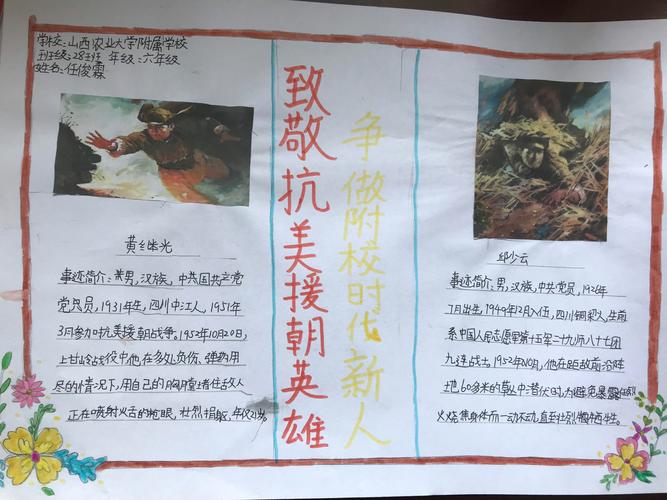 学校:山西农业大学附属学校
班级:28班 年级:六年级
姓名:任俊霖
致敬抗美援朝英雄
争做附校时代新人
黄继光
事迹简介:黄男,汉族,中共国共产党
党党员,1931年生,四川中江人,1951年
3月参加抗美援朝战争。1952年10月20日,
上甘岭战役中他在多处负伤、弹药用
尽的情况下,用自己的胸膛堵住敌人
正在喷射火舌的枪眼,壮烈捐躯,年仅21岁。
邱少云
事迹简介:男,汉族,中共党员,1926年
7月出生,1949年12月入伍,四川铜梁人,生前
系中国人民志愿军第十五军二十九师八十七团
九连战士,1952年10月,他在距敌前沿阵
地60多米的草丛中潜伏时,为避免暴露任
火烧焦身体而一动不动,直至壮烈牺牲。